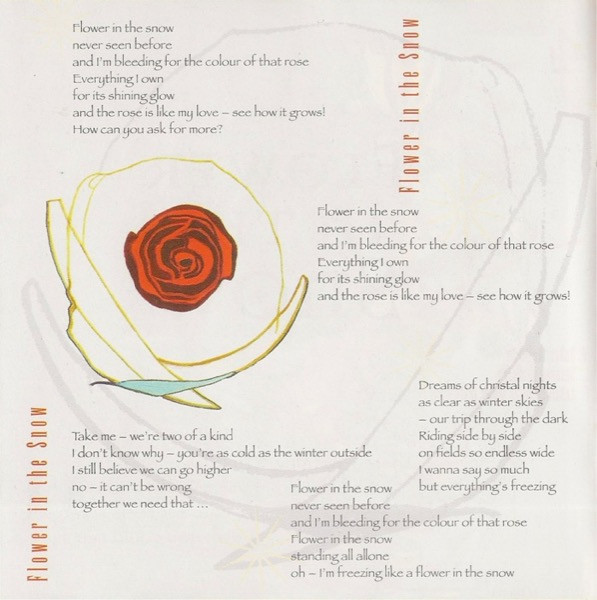 Flower in the snow
never seen before
and I'm bleeding for the colour of that rose
Everything I own
for its shining glow
and the rose is like my love – see how it grows!
How can you ask for more?
Flower in the Snow
Flower in the snow
never seen before
and I'm bleeding for the colour of that rose
Everything I own
for its shining glow
and the rose is like my love – see how it grows!
Dreams of christal nights
as clear as winter skies
– our trip through the dark
Riding side by side
on fields so endless wide
I wanna say so much
but everything's freezing
Flower in the Snow
Take me – we're two of a kind
I don't know why – you're as cold as the winter outside
I still believe we can go higher
no – it can't be wrong
together we need that ...
Flower in the snow
never seen before
and I'm bleeding for the colour of that rose
Flower in the snow
standing all allone
oh – I'm freezing like a flower in the snow